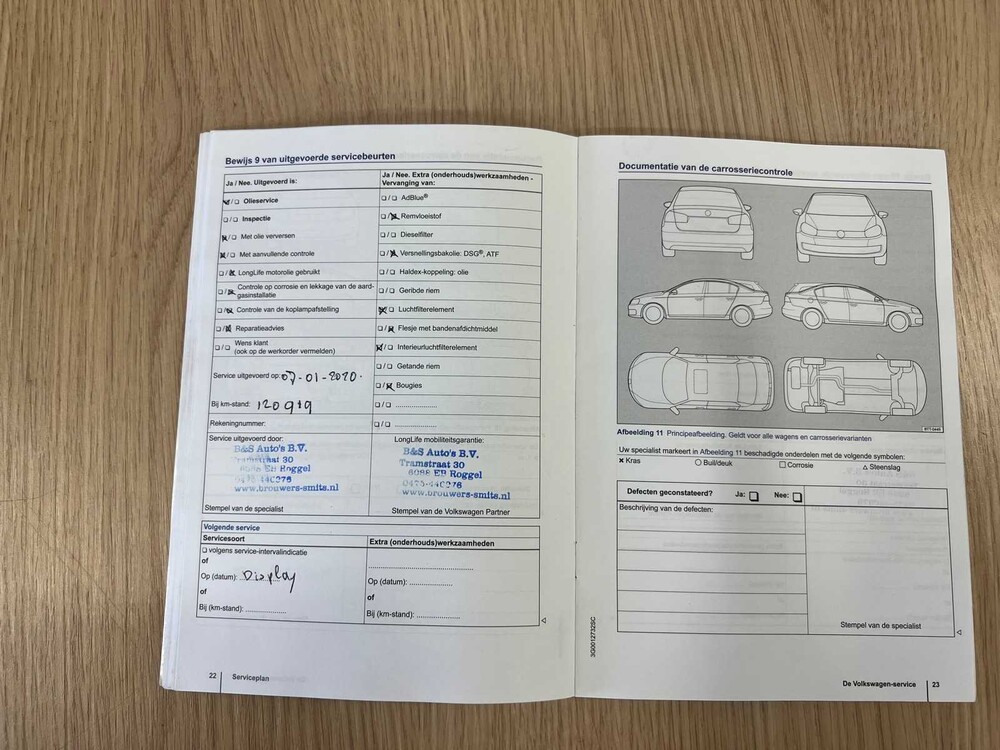 Bewijs 9 van uitgevoerde servicebeurten
Ja / Nee. Uitgevoerd is:
Olieservice
Inspectie
Met olie verversen
Met aanvullende controle
LongLife motorolie gebruikt
Controle op corrosie en lekkage van de aard-
gasinstallatie
Controle van de koplampafstelling
Reparatieadvies
Wens klant
(ook op de werkorder vermelden)
Service uitgevoerd op: 07-01-2020.
Bij km-stand: 120919
Rekeningnummer:
Ja / Nee. Extra (onderhouds)werkzaamheden -
Vervanging van:
AdBlue®
Remvloeistof
Dieselfilter
Versnellingsbakolie: DSG®, ATF
Haldex-koppeling: olie
Geribde riem
Luchtfilterelement
Flesje met bandenafdichtmiddel
Interieurluchtfilterelement
Getande riem
Bougies
Service uitgevoerd door:
B&S Auto's B.V.
Tramstraat 30
6088 EB Roggel
0475-440276
www.brouwers-smits.nl
Stempel van de specialist
LongLife mobiliteitsgarantie:
B&S Auto's B.V.
Tramstraat 30
6088 EB Roggel
0475-440276
www.brouwers-smits.nl
Stempel van de Volkswagen Partner
Volgende service
Servicesoort
volgens service-intervalindicatie
of
Op (datum): Display
of
Bij (km-stand): ....................
Extra (onderhouds)werkzaamheden
Op (datum): ....................
of
Bij (km-stand): ....................
22 Serviceplan
Documentatie van de carrosseriecontrole
BTT-0449
Afbeelding 11 Principeafbeelding. Geldt voor alle wagens en carrosserievarianten
Uw specialist markeert in Afbeelding 11 beschadigde onderdelen met de volgende symbolen:
× Kras ○ Buil/deuk □ Corrosie △ Steenslag
Defecten geconstateerd? Ja: Nee:
Beschrijving van de defecten:
Stempel van de specialist
3G0012732SC
De Volkswagen-service 23